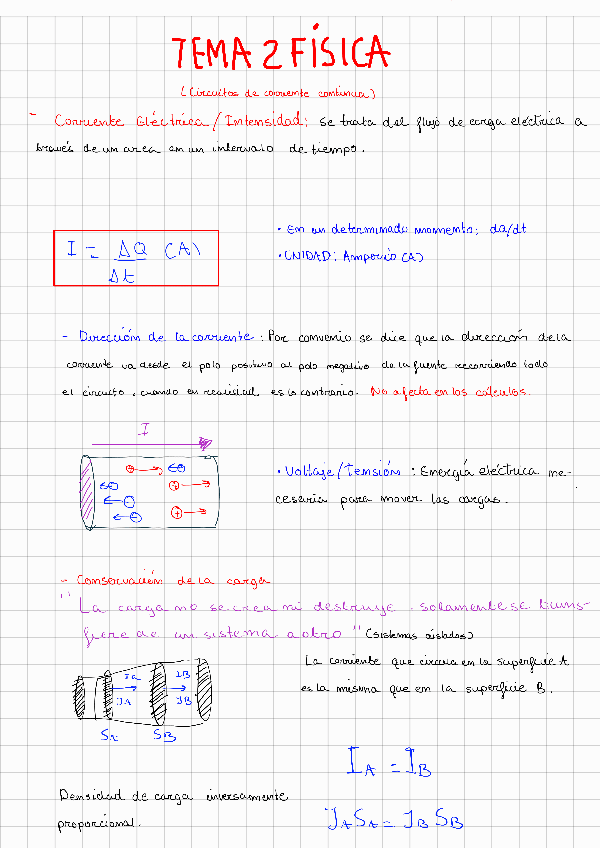 TEMA 2 FÍSICA
(Circuitos de corriente continua)
- Corriente Eléctrica / Intensidad: Se trata del flujo de carga eléctrica a
través de un area en un intervalo de tiempo.
I = ΔQ (A)
Δt
• En un determinado momento: dQ/dt
• UNIDAD: Amperio (A)
- Dirección de la corriente: Por convenio se dice que la dirección de la
corriente va desde el polo positivo al polo negativo de la fuente recorriendo todo
el circuito, cuando en realidad es lo contrario. No afecta en los cálculos.
I
• Voltaje / Tensión: Energía eléctrica ne-
cesaria para mover las cargas.
- Conservación de la carga
"La carga no se crea ni destruye. solamente se trans-
fiere de un sistema a otro" (sistemas aislados)
La corriente que circula en la superficie A
es la misma que en la superficie B.
IA IB
JA JB
SA SB
IA = IB
Densidad de carga inversamente
proporcional.
JASA = JB SB